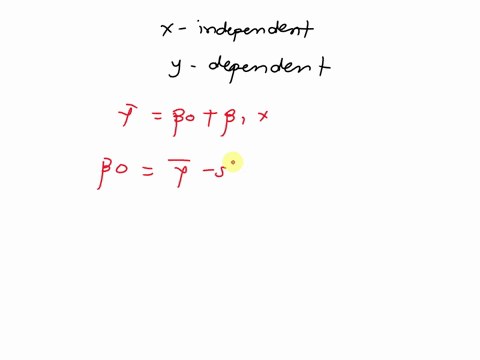 x - independent
y - dependent
ȳ = β0 + β1 x
β0 = ȳ - s